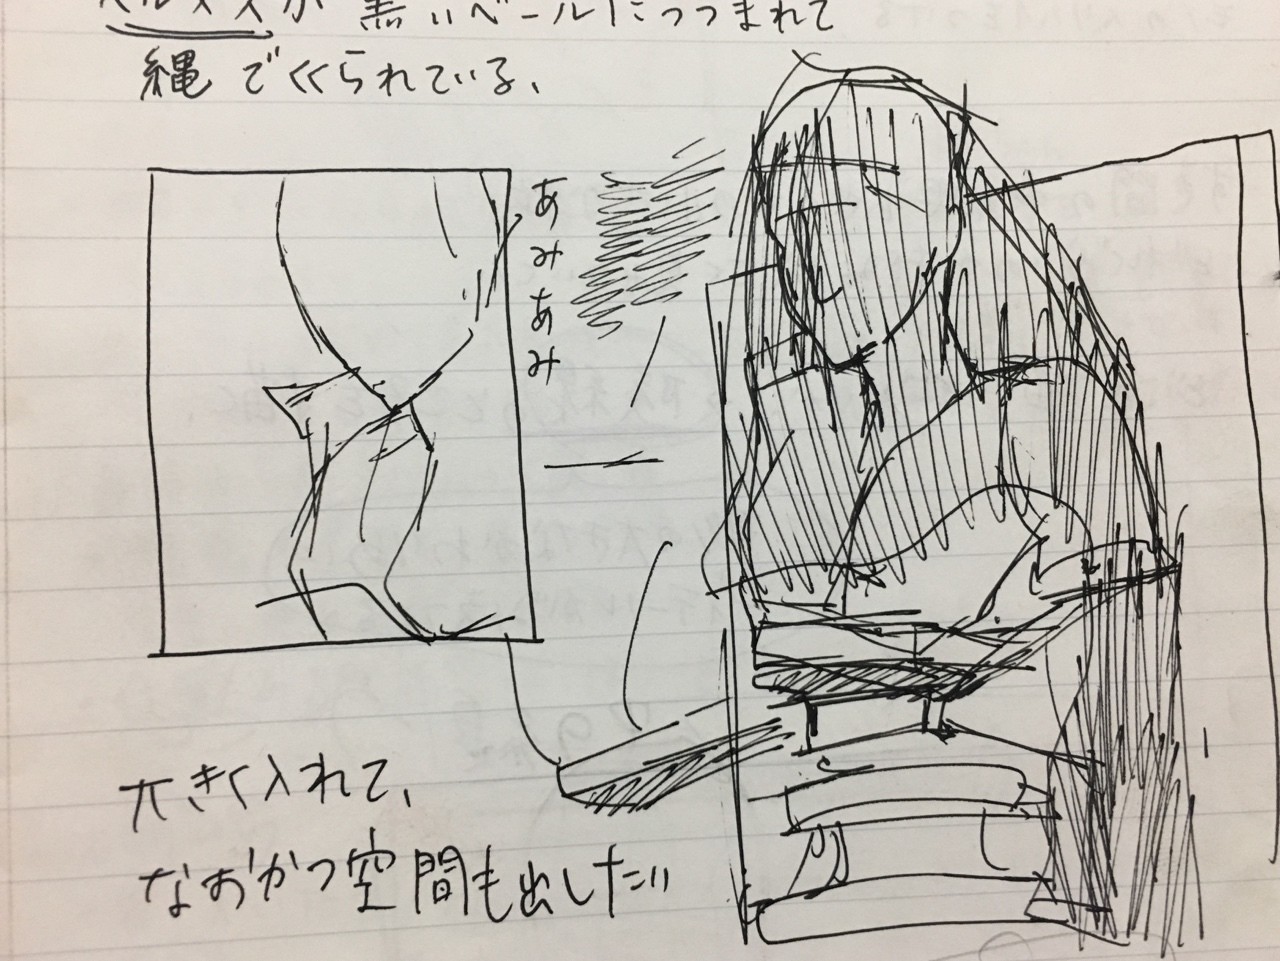 ヘルメスが黒いベールにつつまれて
縄でくくられている、
あみあみ
大きく入れて、
なおかつ空間も出したい